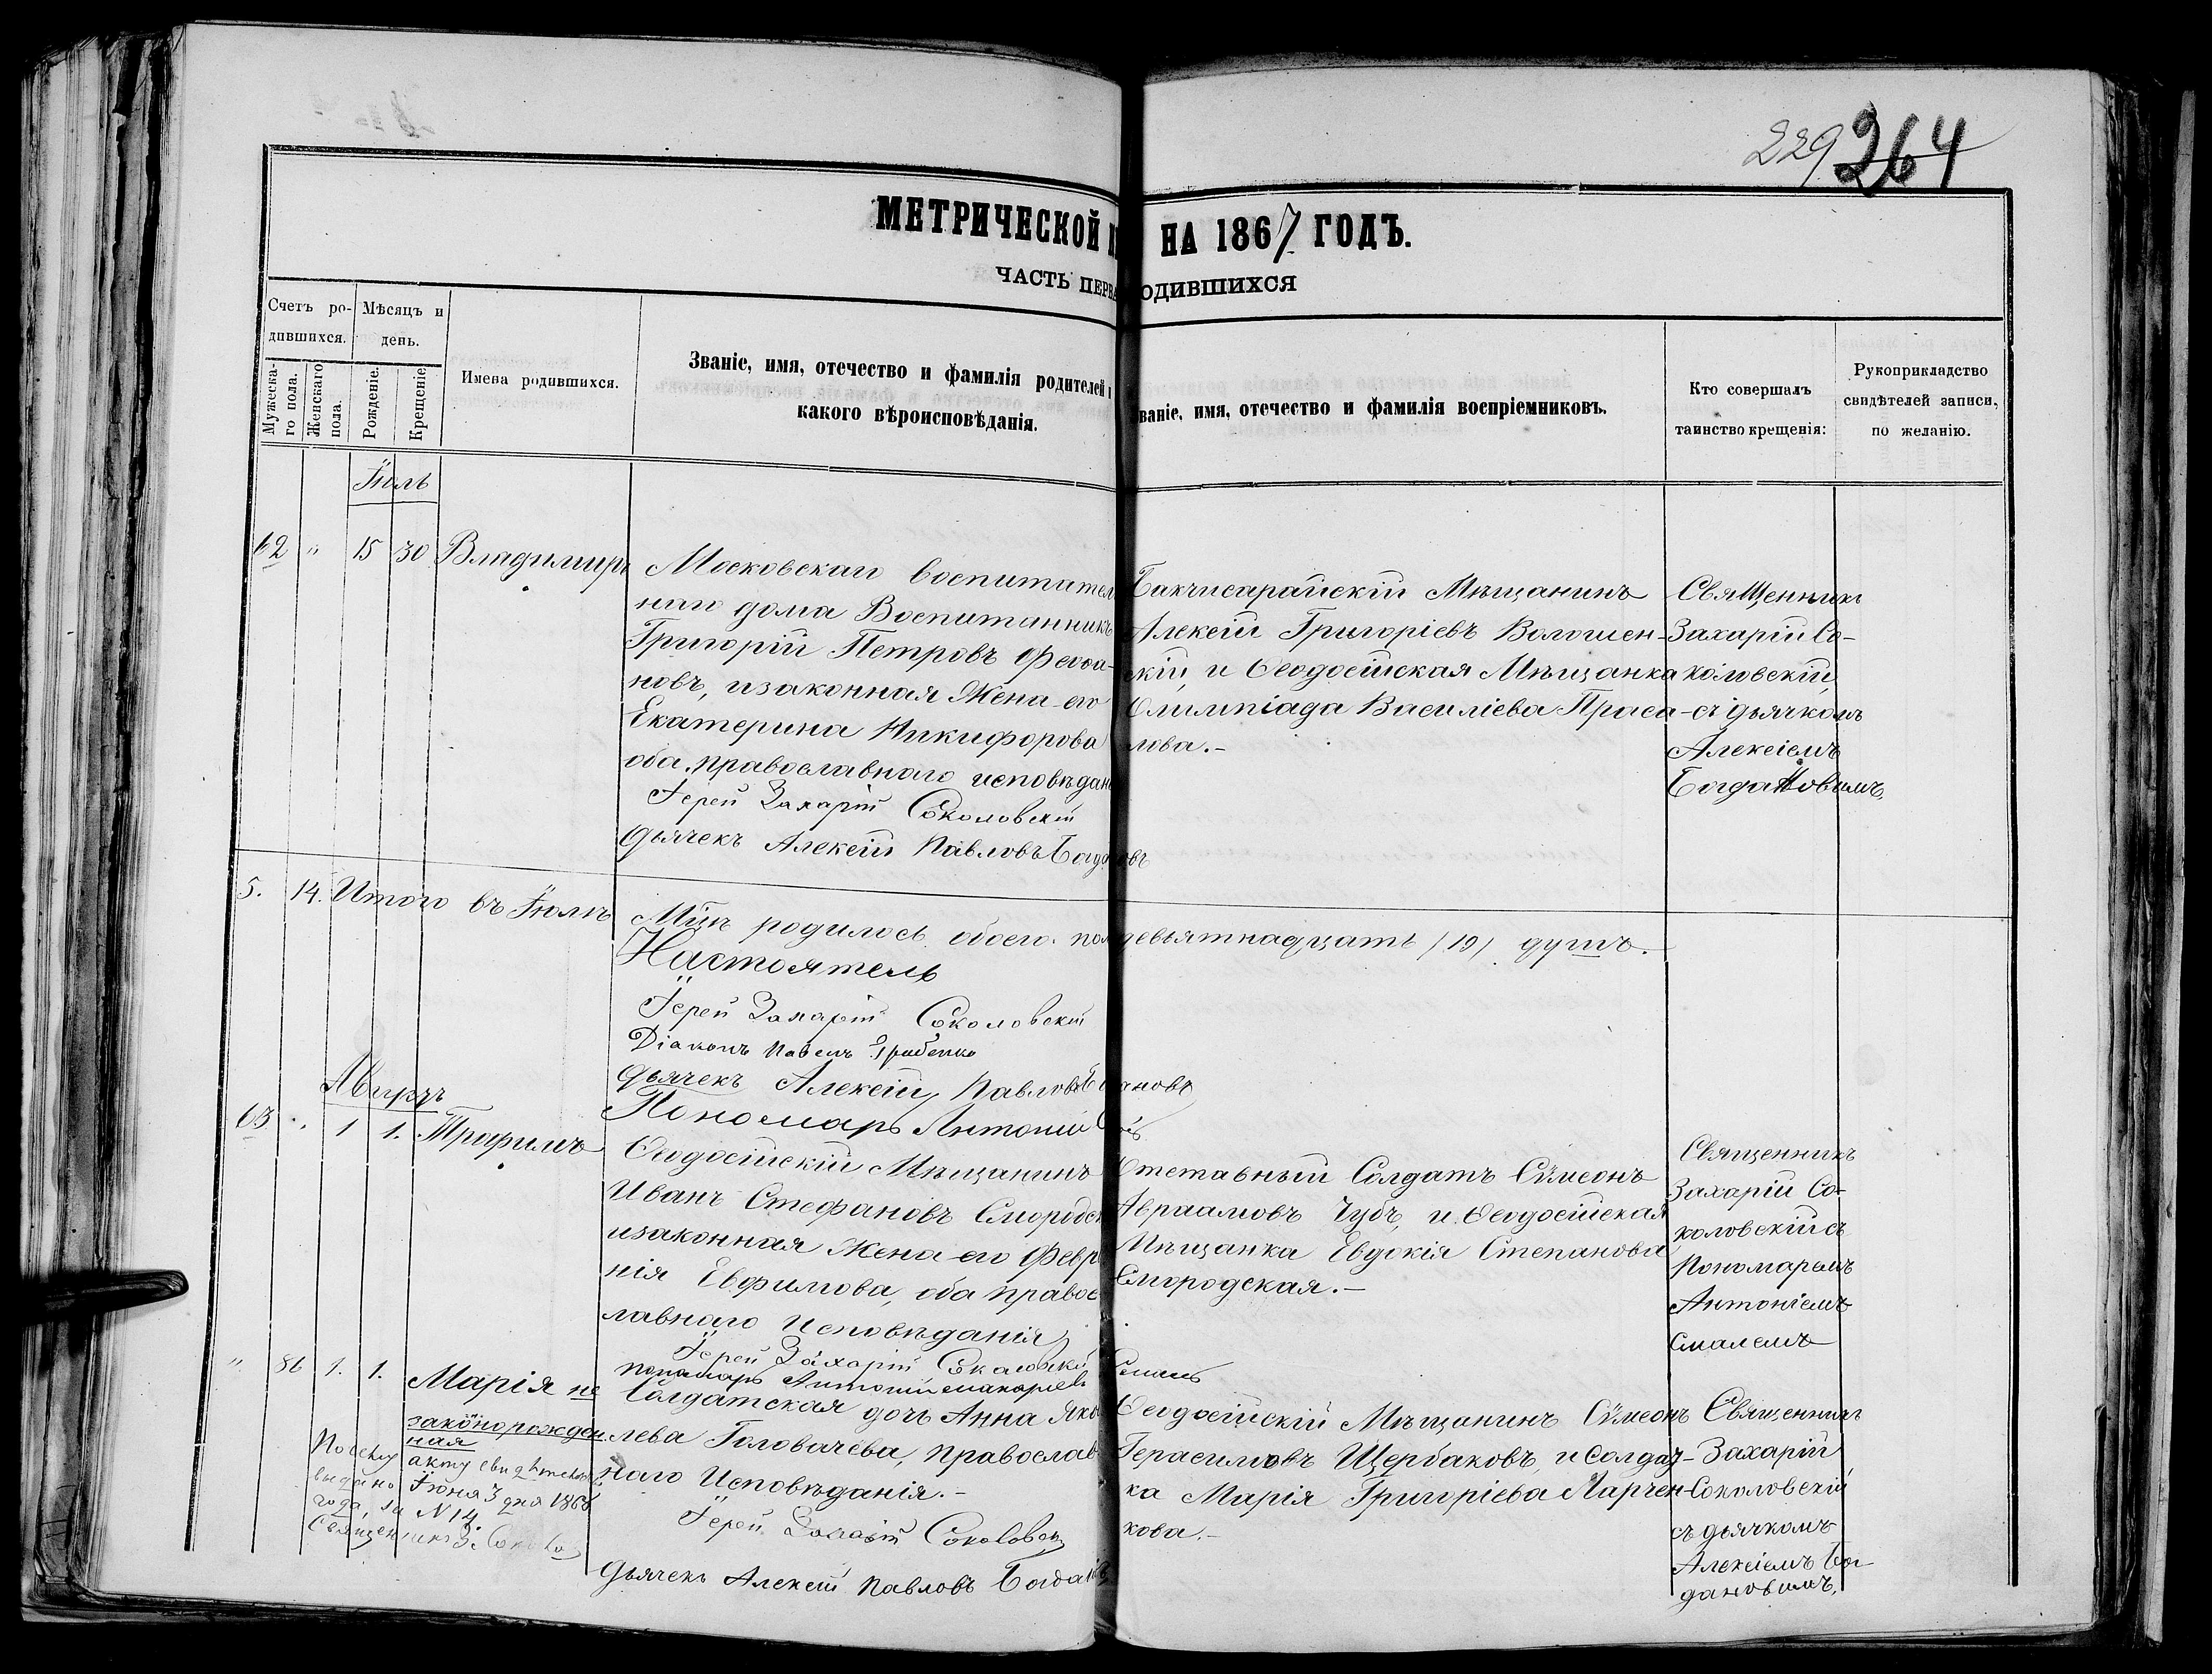 229 264
МЕТРИЧЕСКОЙ НА 1867 ГОДЪ.
ЧАСТЬ ПЕРВА ОДИВШИХСЯ
Счетъ ро-
дившихся.
Мужеска-
го пола.
Женскаго
пола.
Мѣсяцъ и
день.
Рожденіе.
Крещеніе.
Имена родившихся.
Званіе, имя, отечество и фамилія родителей и
какого вѣроисповѣданія.
ваніе, имя, отечество и фамилія воспріемниковъ.
Кто совершалъ
таинство крещенія:
Рукоприкладство
свидѣтелей записи,
по желанію.
Іюль
62 " 15 30 Владимиръ
Московскаго воспитател
наго дома Воспитанникъ
Григорій Петровъ Феофа-
новъ, изаконная Жена его
Екатерина Никифорова
оба православнаго исповѣдан
Іерей Захарій Соколовскій
Дьячекъ Алексій Павловъ Богдановъ
Бакчисарайскій Мѣщанинъ
Алексій Григоріевъ Волошен-
скій, и Ѳеодосійская Мѣщанка
Олимпіада Василіева Праса-
лова.-
Священникъ
Захарій Со-
коловскій,
съ дьячкомъ
Алексіемъ
Богдановымъ,
5. 14. Итого въ Іюлѣ Мцѣ родилось обоего пол девятнадцать /19/ душъ.-
Настоятель
Іерей Захарій Соколовскій
Діаконъ Павелъ Грабенко
Дьячекъ Алексій Павловъ Богдановъ
Пономарь Антоній
Августъ
63 " 1 1. Трофимъ
Ѳеодосійскій Мѣщанинъ
Иванъ Стефановъ Смородск
изаконная Жена его Февр
нія Евфимова, оба правос
лавнаго Исповѣданія,
Іерей Захарій Соколовскій
Пономарь Антоній Макаріевъ Смаль
Отставный Солдатъ Сѵмеонъ
Авраамовъ Чубъ, и Ѳеодосійская
Мѣщанка Евдокія Степанова
Смородская.-
Священникъ
Захарій Со-
коловскій съ
Пономаремъ
Антоніемъ
Смалемъ
" 86 1. 1. Марія не
законорожден.
ная
По сему акту свидѣтельс.
выдано Іюня 3 дня 1868
года, за N 14.
Священникъ З. Соколо
Солдатская дочь Анна Яко
лева Головачева, православ
наго Исповѣданія.-
Іерей Захарій Соколовск
Дьячекъ Алексій Павловъ Богданов
Ѳеодосійскій Мѣщанинъ Сѵмеонъ
Герасимовъ Щербаковъ, и Солдат-
ка Марія Григоріева Харчен-
кова.-
Священникъ
Захарій
Соколовскій
съ дьячкомъ
Алексіемъ Бог
дановымъ,